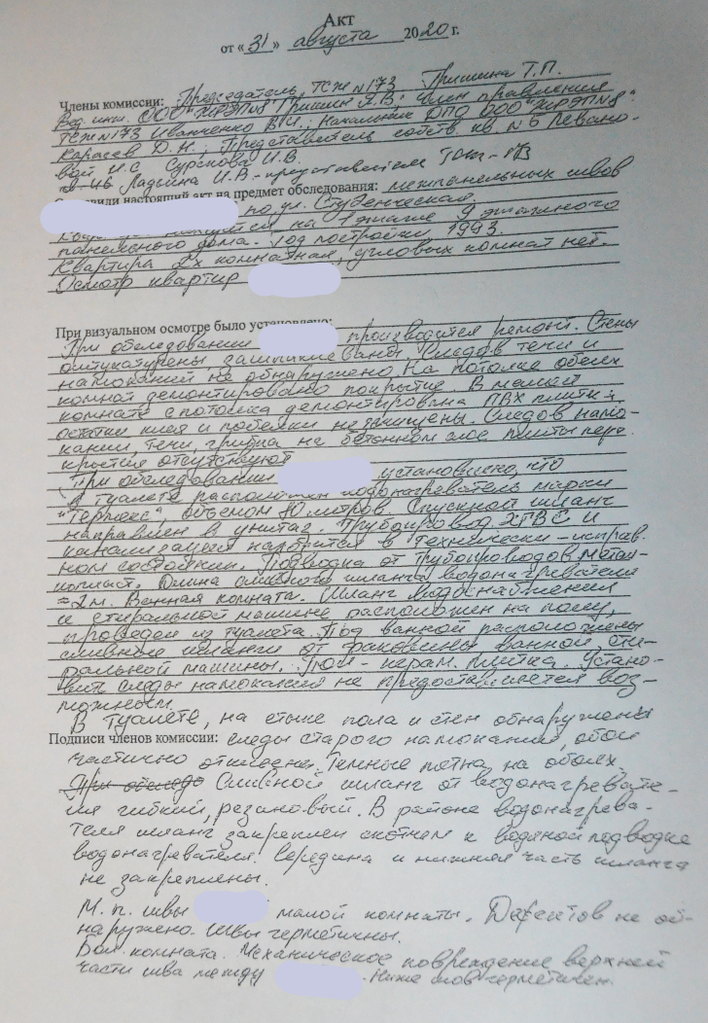 Акт
от «31» августа 2020 г.
Члены комиссии: Председатель ТСЖ №173 Гришина Т.П.
Вед. инж. ООО "ЖРЭП №8" Гришин А.В; член правления
ТСЖ №173 Иванченко В.И.; Начальник ОПО ООО "ЖРЭП №8"
Карасев Д.Н.; Представитель собств. кв. №5 Левано-
вой И.С Сурскова И.В.
кв. 46 Ладыгина И.В - представителем
настоящий акт на предмет обследования: межпанельных швов
по ул. Студенческая.
на 1 этаже 9 этажного
панельного дома. Год постройки 1993.
Квартира 2х комнатная, угловых комнат нет.
Осмотр квартир
При визуальном осмотре было установлено:
При обследовании производится ремонт. Стены
оштукатурены, зашпаклеваны. Следов течи и
намоканий не обнаружено. На потолке обеих
комнат демонтировано покрытие. В малой
комнате с потолка демонтирована ПВХ плитка,
остатки клея и побелки не зачищены. Следов намо-
кании, течи, грибка на бетонном слое плиты пере-
крытия отсутствуют
При обследовании установлено, что
в туалете расположен водонагреватель марки
"Термекс", объемом 10 литров. Спускной шланг
направлен в унитаз. Трубопровод ХГВС и
канализация находится в технически-исправ-
ном состоянии. Подводка от трубопроводов метал-
лопласт. Длина сливного шланга водонагревателя
≈2м. Ванная комната. Шланг водоснабжения
к стиральной машине расположен на полу,
проведен из туалета. Под ванной расположены
сливные шланги от раковины, ванной, сти-
ральной машины. Пол - керам. плитка. Устано-
вить следы намоканий не предоставляется воз-
можным.
В туалете, на стыке пола и стен обнаружены
Подписи членов комиссии: следы старого намокания, обои
частично отклеены. Темные пятна на обоях.
При обследо Сливной шланг от водонагревате-
ля гибкий, резиновый. В районе водонагрева-
теля шланг закреплен скотчем к водяной подводке
водонагревателя. Середина и нижняя часть шланга
не закреплены.
М.п. швы малой комнаты. Дефектов не об-
наружено. Швы герметичны.
Бол. комната. Механическое повреждение верхней
части шва между Ниже шов герметичен.